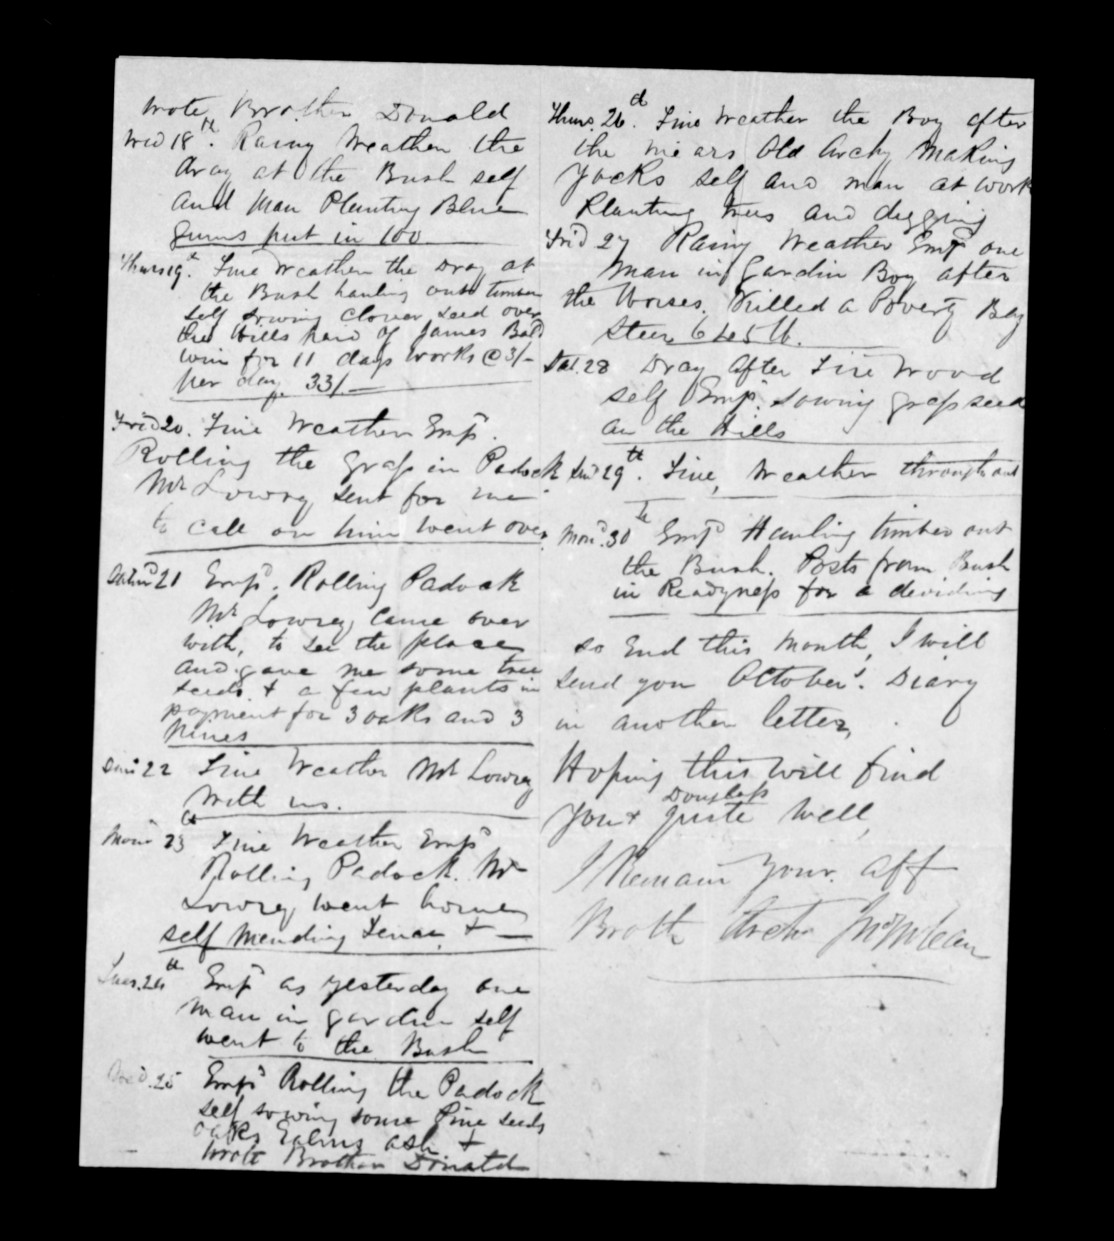 wrote Brother Donald
Wed 18th. Rainy Weather the
dray at the Bush self
and Man Planting Blue
gums put in 100
Thurs 19th. Fine Weather the Dray at
the Bush hauling out timber
self sowing Clover seed over
the Hills paid of James Bald
win for 11 days works @ 3/-
per day. 33/-
Frid 20. Fine Weather Empd.
Rolling the grass in Padock
Mr Lowry sent for me
to call on him went over
Saturd 21 Empd. Rolling Padock
Mr Lowry came over
with, to see the place
and gave me some tree
seeds & a few plants in
payment for 3 oaks and 3
Pines
Sun 22 Fine Weather Mr Lowry
with us.
Mon 23 Fine Weather Empd
Rolling Padock. Mr
Lowry went home
self mending &
Tues. 24th Empd as yesterday one
man in garden self
went to the Bush
Wed. 25 Empd Rolling the Padock
self sowing some Pine seeds
oaks ash &
wrote Brother Donald
Thurs. 26d. Fine Weather the Boy after
the mears Old Archy Making
Yocks self and man at work
Planting trees and digging
Frid 27 Rainy Weather Empd one
Man in gardin Boy after
the Horses. Killed a Poverty Bay
Steer 645 lb.
Sat. 28 Dray after Fire Wood
self Empd. sowing grass seed
on the Hills
Sun 29th. Fine, Weather throughout
Mon. 30th Empd Hauling timber out
the Bush. Posts from Bush
in Readyness for a deviding
so End this Month, I will
send you October's. Diary
in another letter,
Hoping this will find
Douglass
You & quite well,
I Remain Your. aff
Broth Archd McLean